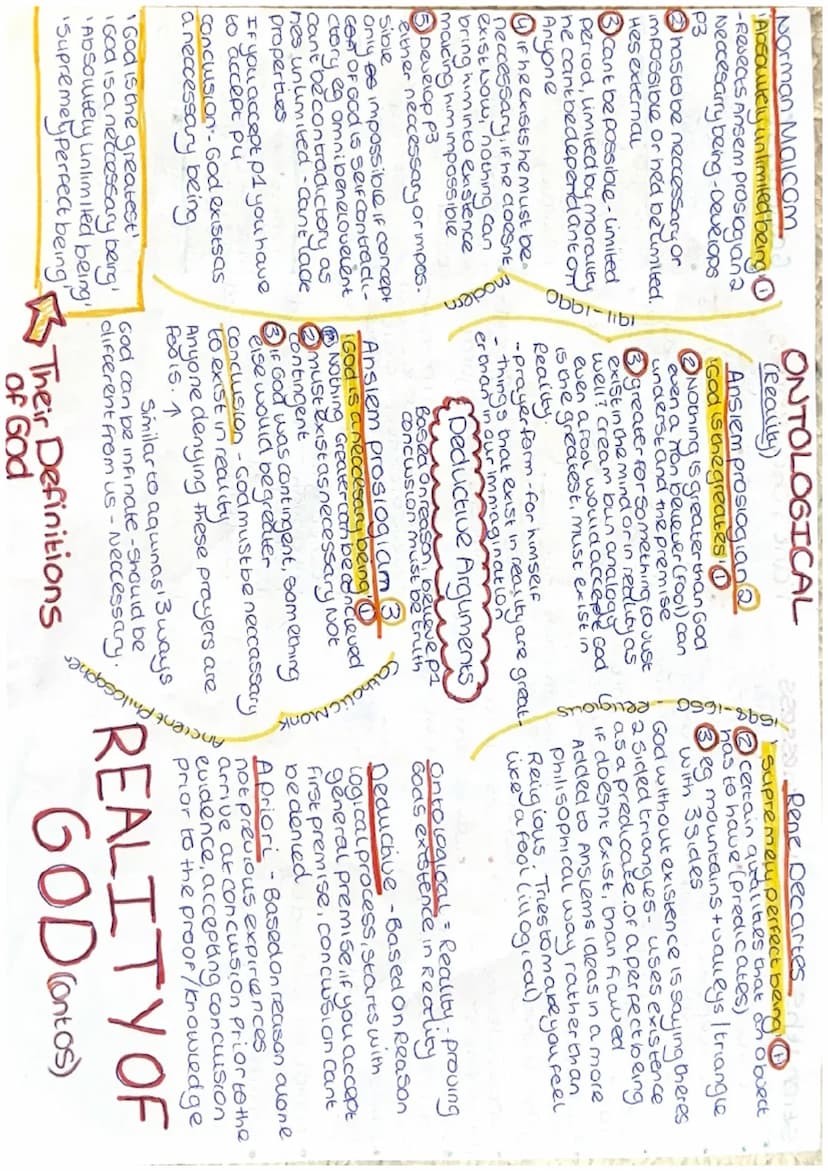 ONTOLOGICAL
(Reality)
Norman Malcom
'Absolutely unlimited being' ①
- Rejects Anselm proslogian 2
Neccesarry being - Develops
P3
② has to be neccessary or
impossible or he'd be limited.
He's external
③ Can't be possible - limited
period, limited by morality
he can't be dependant on
Anyone
④ If he exists he must be
neccessary, if he doesn't
exist now, nothing can
bring him into existence
making him impossible
⑤ Develop P3
either neccessary or impos-
sible
only impossible if concept
of God is self contradi-
ctory eg omnibenevolent
can't be contradictory as
he's unlimited - can't lack
properties
If you accept p1 you have
to accept p4
conclusion - God exists as
a neccessary being
'God is the greatest'
'God is a neccessary being'
'Absolutely unlimited being'
'supremely perfect being'
Their Definitions
of God
1911-1990
modern
Anslem proslogian ②
'God is the greates' ①
② Nothing is greater than God
even a non believer (fool) can
understand the premise
③ greater for something to just
exist in the mind or in reality as
well? cream bun analogy
even a fool would accept God
is the greatest, must exist in
Reality
- prayer form - for himself
- things that exist in reality are great-
er than in our immagination
Deductive Arguments
Based on reason, believe p1
conclusion must be truth
Anslem proslogiam ③
'God is a neccesary being' ①
Nothing Greater can be concieved
② must exist as necessary not
contingent
③ if God was contingent, something
else would be greater
conclusion - God must be neccassary
to exist in reality
Anyone denying these prayers are
fools. ↑
Similar to aquinas' 3 ways
God can be infinate - should be
different from us - Neccessary.
Catholic Monk
Ancient Philosopher
Rene Decartes
'supremely perfect being' ①
② certain qualities that an object
has to have (predicates)
③ eg mountains + valleys / triangle
with 3 sides
God without existence is saying theres
2 sided triangles - uses existence
as a predicate of a perfect being
if doesn't exist, than flawed
Added to Anslems ideas in a more
Philosophical way rather than
Religious. Tries to make you feel
like a fool (illogical)
religious
Ontological = Reality - proving
Gods existence in Reality
Deductive - Based on Reason
Logical process, starts with
general premise, if you accept
First premise, conclusion can't
be denied
A priori - Based on reason alone
not previous expiriences
arrive at conclusion prior to the
evidence, accepting conclusion
prior to the proof/knowledge
REALITY OF
GOD (ontos)